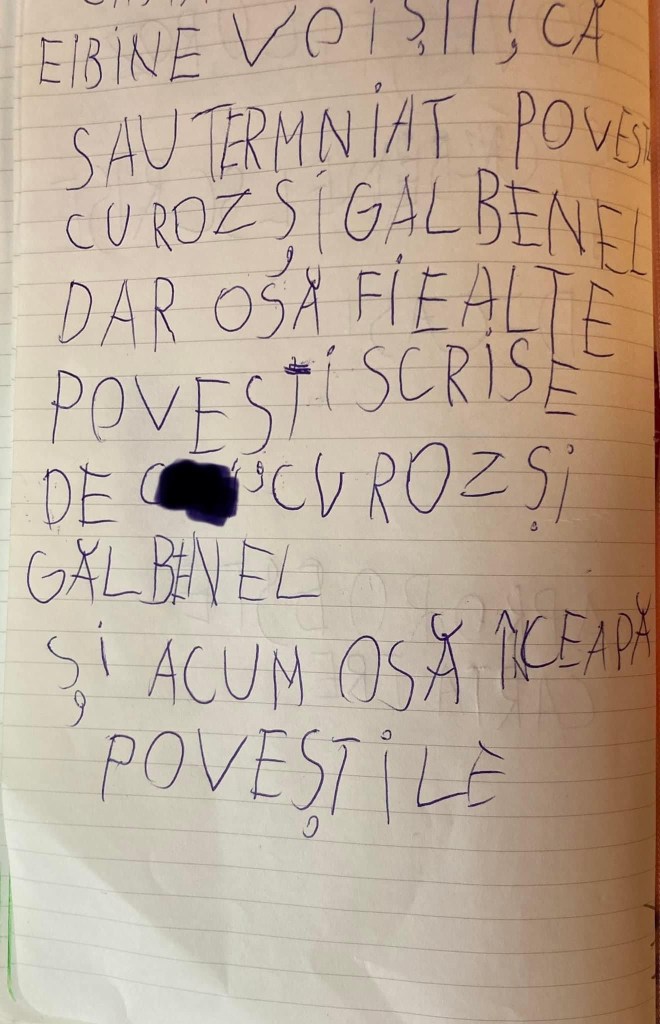 EIBINE VOIȘTI, CĂ
SAU TERMNIAT POVESTI
CU ROZ ȘI GALBENEL
DAR OSĂ FIE ALTE
POVESTI SCRISE
DE CU ROZ ȘI
GĂLBENEL
ȘI ACUM OSĂ ÎNCEAPĂ
POVEȘTILE